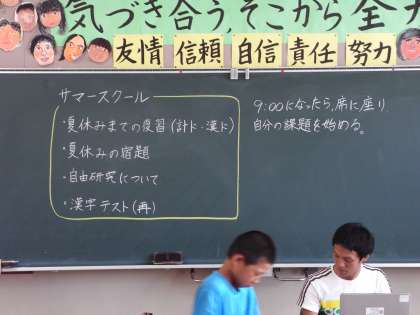 気づき合う,そこから全力
友情 信頼 自信 責任 努力
サマースクール
・夏休みまでの復習(計ド・漢ド)
・夏休みの宿題
・自由研究について
・漢字テスト(再)
9:00になったら,席に座り
自分の課題を始める。